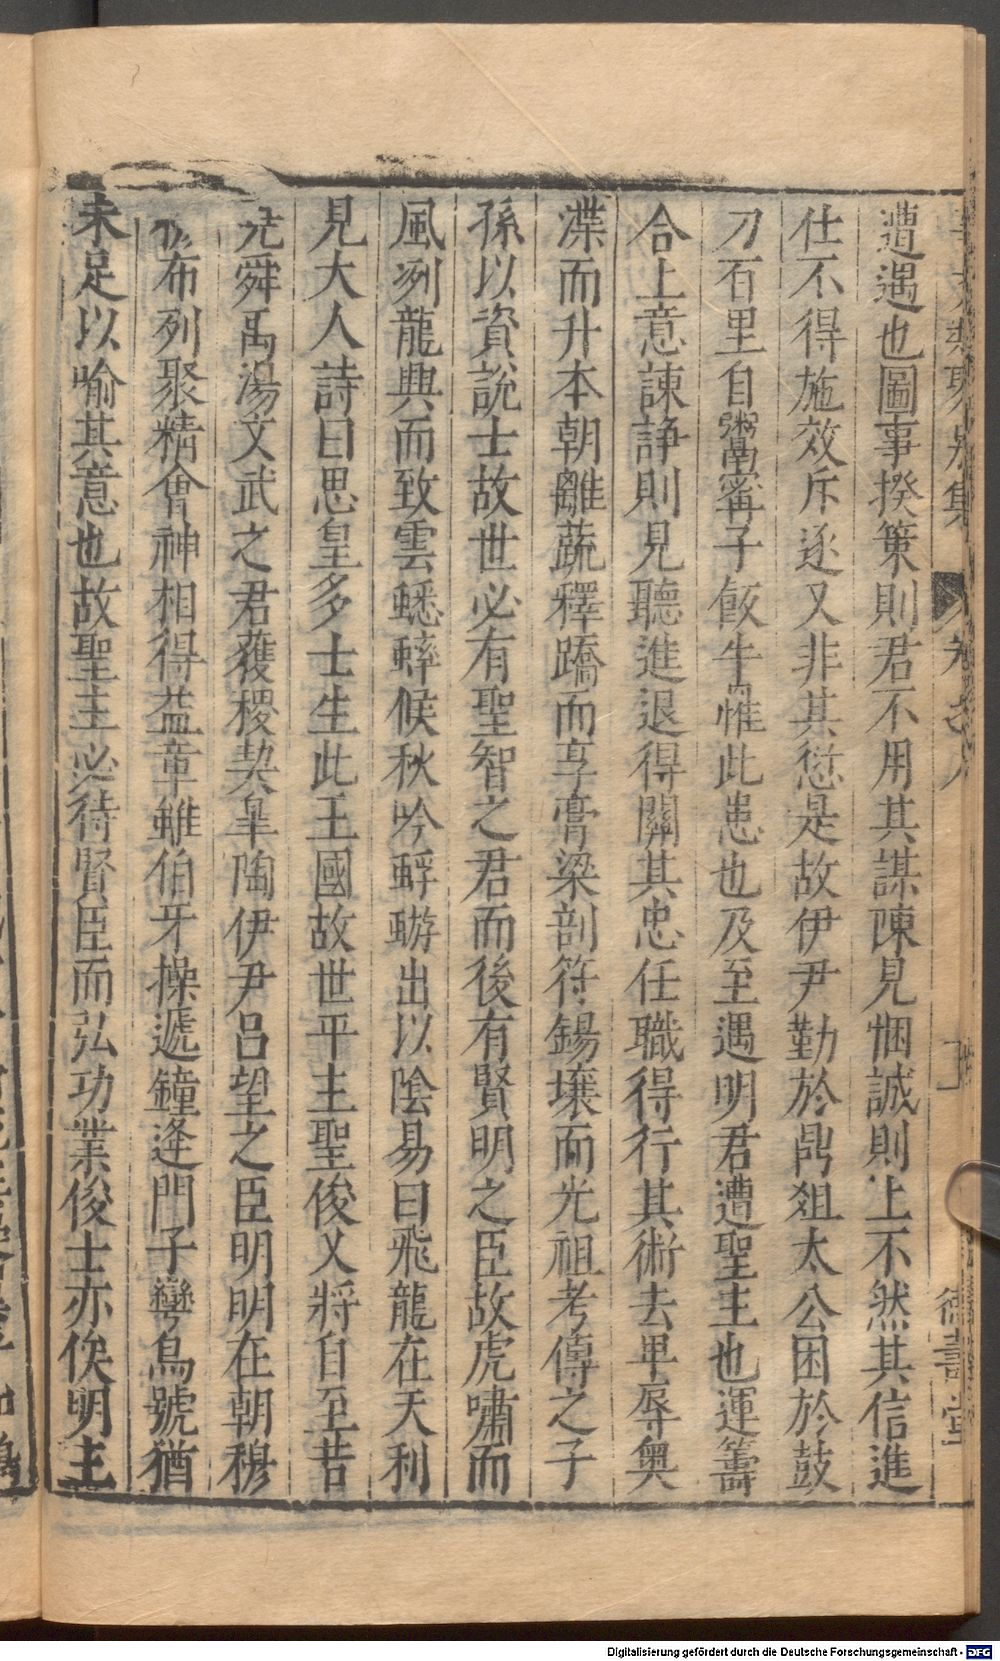 遭遇也圖事揆策則君不用其謀陳見悃誠則上不然其信進
仕不得施效斥逐又非其愆是故伊尹勤於鼎俎太公困於鼓
刀百里自鬻甯子飯牛離此患也及至遇明君遭聖主也運籌
合上意諫諍則見聽進退得關其忠任職得行其術去卑辱奧
渫而升本朝離蔬釋蹻而享膏粱剖符錫壤而光祖考傳之子
孫以資說士故世必有聖智之君而後有賢明之臣故虎嘯而
風冽龍興而致雲蟋蟀候秋吟蜉蝣出以陰易曰飛龍在天利
見大人詩曰思皇多士生此王國故世平主聖俊乂將自至昔
堯舜禹湯文武之君獲稷契皐陶伊尹呂望之臣明明在朝穆
布列聚精會神相得益章雖伯牙操遞鐘逄門子彎烏號猶
未足以喻其意也故聖主必待賢臣而弘功業俊士亦俟明主
德壽堂
Digitalisierung gefördert durch die Deutsche Forschungsgemeinschaft - DFG